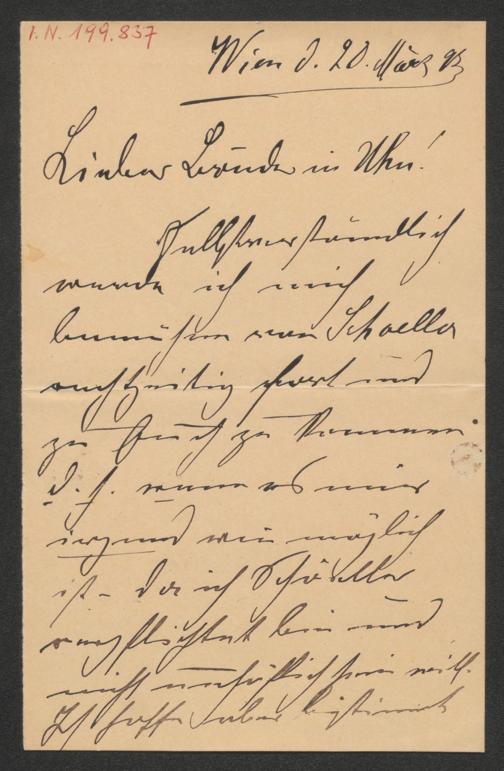 I.N. 199.837
Wien d. 20. März 93
Lieber Bruder in Uhu!
Selbstverständlich
werde ich mich
bemühen von Schoeller
rechtzeitig fort und
zu Euch zu kommen
d. h. wenn es mir
irgend wie möglich
ist – da ich Schöeller
verpflichtet bin und
nicht unhöflich sein will.
Ich hoffe aber bestimmt